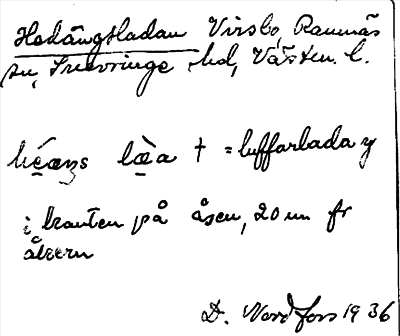 Hedängsladan Virsbo, Ramnäs
sn, Snevringe hd, Västm. l.
héæŋs læ̀a † = luffarlada
i kanten på åsen, 20 m fr
älven
D. Nordfors 1936